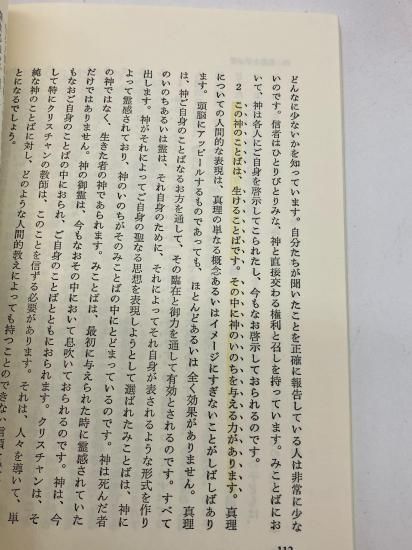 どんなに少ないかを知っています。自分たちが聞いたことを正確に報告している人は非常に少な
いのです。信者はひとりびとりみな、神と直接交わる権利と召しを持っています。みことばにお
いて、神は各人にご自身を啓示してこられたし、今もなお啓示しておられるのです。
2 この神のことばは、生けることばです。その中に神のいのちを与える力があります。真理
についての人間的な表現は、真理の単なる概念あるいはイメージにすぎないことがしばしばあり
ます。頭脳にアッピールするものであっても、ほとんどあるいは全く効果がありません。真理
は、神ご自身のことばなるお方を通して、その臨在と御力を通して有効とされるのです。すべて
のいのちあるいは霊は、それ自身のために、それによってそれ自身が表されるような形式を作り
出します。神がそれによってご自身の聖なる思想を表現しようとして選ばれたみことばは、神に
よって霊感されており、神のいのちがそのみことばの中にとどまっているのです。神は死んだ者
の神ではなく、生きた者の神であられます。みことばは、最初に与えられた時に霊感されていた
だけではありません。神の御霊は、今もなおその中において息吹いておられるのです。神は、今
もなおご自身のことばの中におられ、ご自身のことばとともにおられます。クリスチャンは、そ
して特にクリスチャンの教師は、このことを信ずる必要があります。それは、人々を導いて、単
純な神のことばに対し、どのような人間的教えによっても持つことのできない信頼
とになるでしょう。
112